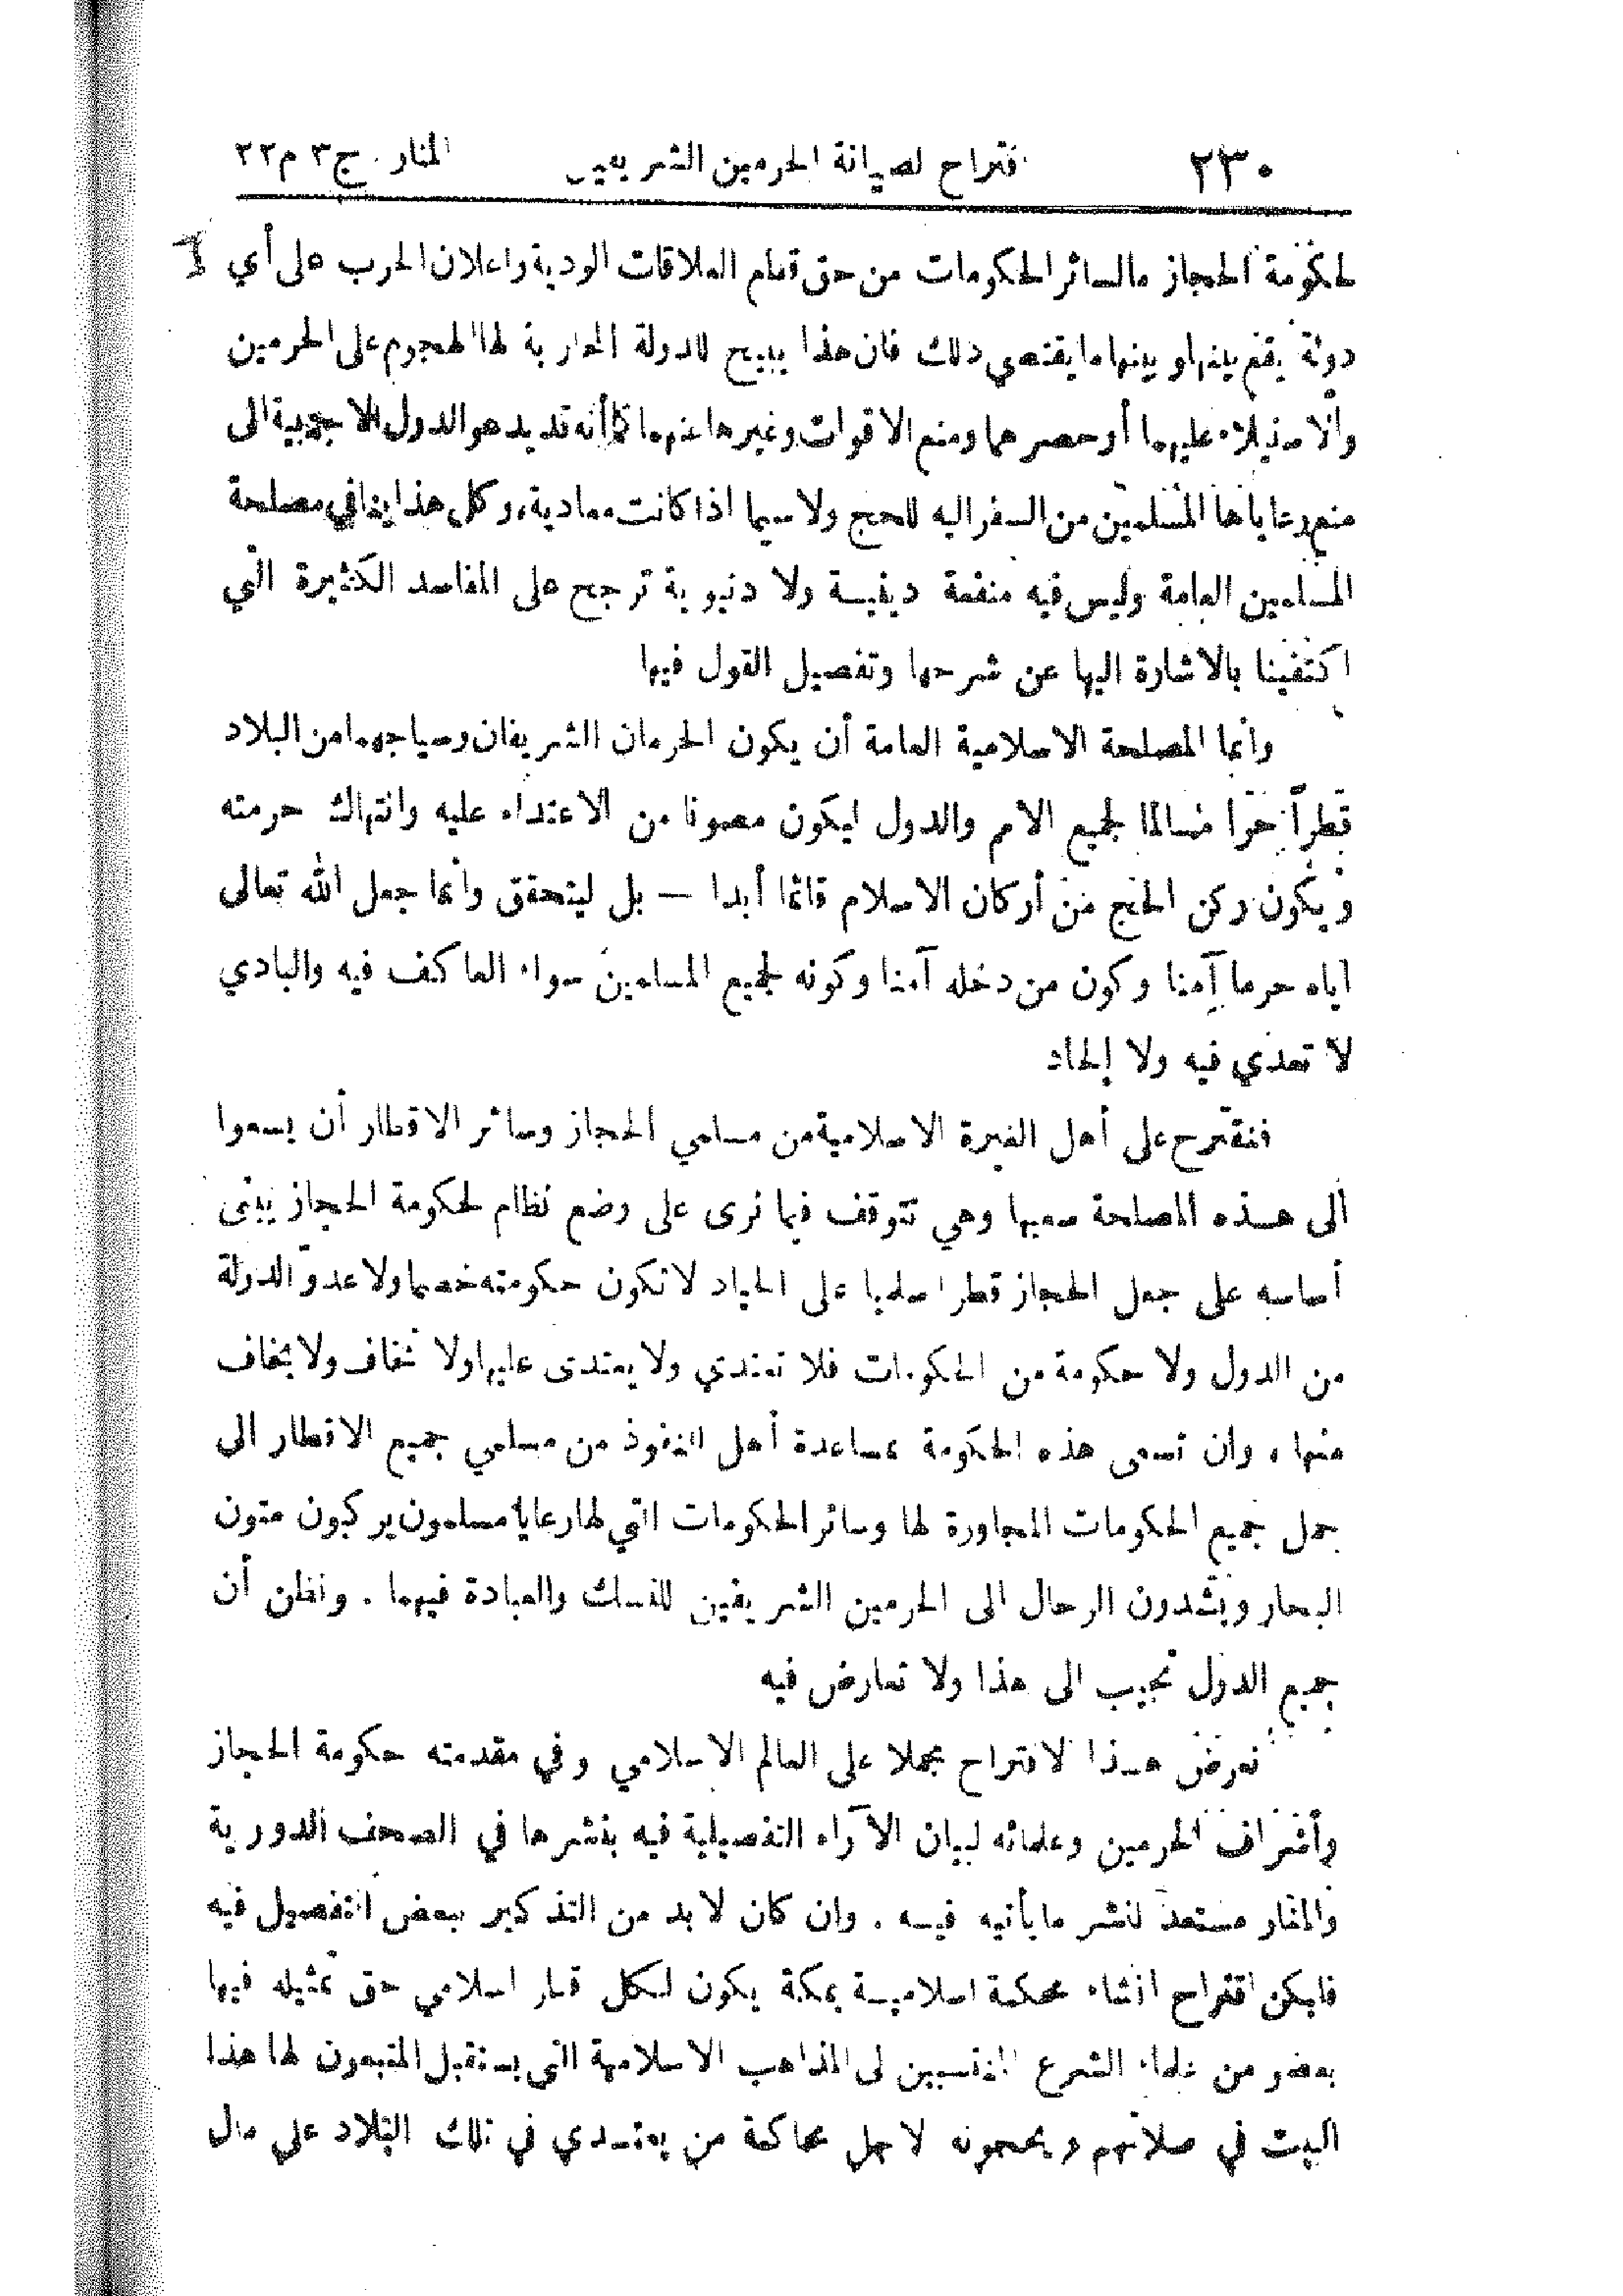 ٢٣٠ اقتراح لصيانة الحرمين الشريفين المنار ج٣ م٢٢
لحكومة الحجاز مالسائر الحكومات من حق قطع العلاقات الودية واعلان الحرب على أي
دولة يقع بينها وبينها ما يقتضي ذلك فان هذا يبيح للدولة المحاربة لها الهجوم على الحرمين
والاستيلاء عليهما أو حصرهما ومنع الاقوات وغيرها عنهما كما أنه قد يدعو الدول الاجنبية الى
منع رعاياها المسلمين من السفر اليه للحج ولا سيما اذا كانت معادية، وكل هذا ينافي مصلحة
المسلمين العامة وليس فيه منفعة دينيـة ولا دنيوية ترجح على المفاسد الكثيرة التي
اكتفينا بالاشارة اليها عن شرحها وتفصيل القول فيها
وانما المصلحة الاسلامية العامة أن يكون الحرمان الشريفان وسياجهما من البلاد
قطراً حرا مسالما لجميع الامم والدول ليكون مصونا من الاعتداء عليه وانتهاك حرمته
ويكون ركن الحج من أركان الاسلام قائما أبدا — بل ليتحقق وانما جعل الله تعالى
اياه حرما آمنا وكون من دخله آمنا وكونه لجميع المسلمين سواء العاكف فيه والبادي
لا تعدي فيه ولا إلحاد
فنقترح على أهل الغيرة الاسلامية من مسلمي الحجاز وسائر الاقطار أن يسعوا
الى هـذه المصلحة سعيها وهي تتوقف فيما نرى على وضع نظام لحكومة الحجاز يبنى
أساسه على جعل الحجاز قطرا سلميا على الحياد لا تكون حكومته خصما ولا عدوا لدولة
من الدول ولا حكومة من الحكومات فلا تعتدي ولا يعتدى عليها ولا تخاف ولا يخاف
منها، وان تسعى هذه الحكومة بمساعدة أهل النفوذ من مسلمي جميع الاقطار الى
جمل جميع الحكومات المجاورة لها وسائر الحكومات التي لها رعايا مسلمون يركبون متون
البحار ويشدون الرحال الى الحرمين الشريفين للنسك والعبادة فيهما . ونظن أن
جميع الدول تجيب الى هذا ولا تعارض فيه
نعرض هـذا الاقتراح مجملا على العالم الاسلامي وفي مقدمته حكومة الحجاز
وأشراف الحرمين وعلمائه لبيان الآراء التفصيلية فيه بنشرها في الصحف الدورية
والمنار مستعد لنشر ما يأتيه فيـه . وان كان لا بد من التذكير ببعض التفصيل فيه
فليكن اقتراح انشاء محكمة اسلاميـة بمكة يكون لكل قطر اسلامي حق تمثيله فيها
بعضو من علماء الشرع المنتسبين الى المذاهب الاسلامية التي يستقبل المتبعون لها هذا
البيت في صلاتهم ويحجونه لاجل محاكمة من يعتـدي في تلك البلاد على مال